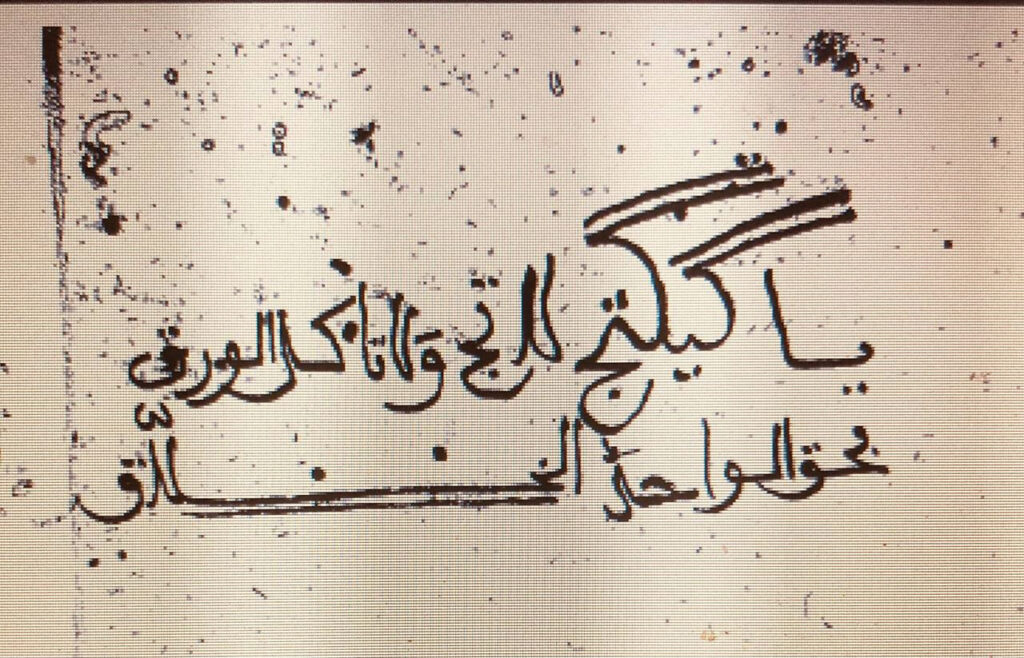 يا كيكتج ولا تاكل الورق
بحق الواحد الخلاق